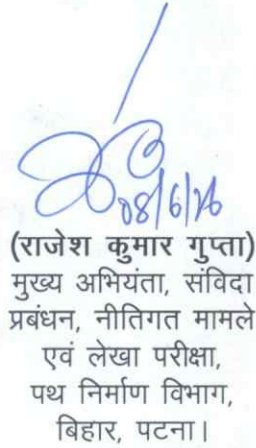 08/6/26
(राजेश कुमार गुप्ता)
मुख्य अभियंता, संविदा
प्रबंधन, नीतिगत मामले
एवं लेखा परीक्षा,
पथ निर्माण विभाग,
बिहार, पटना।